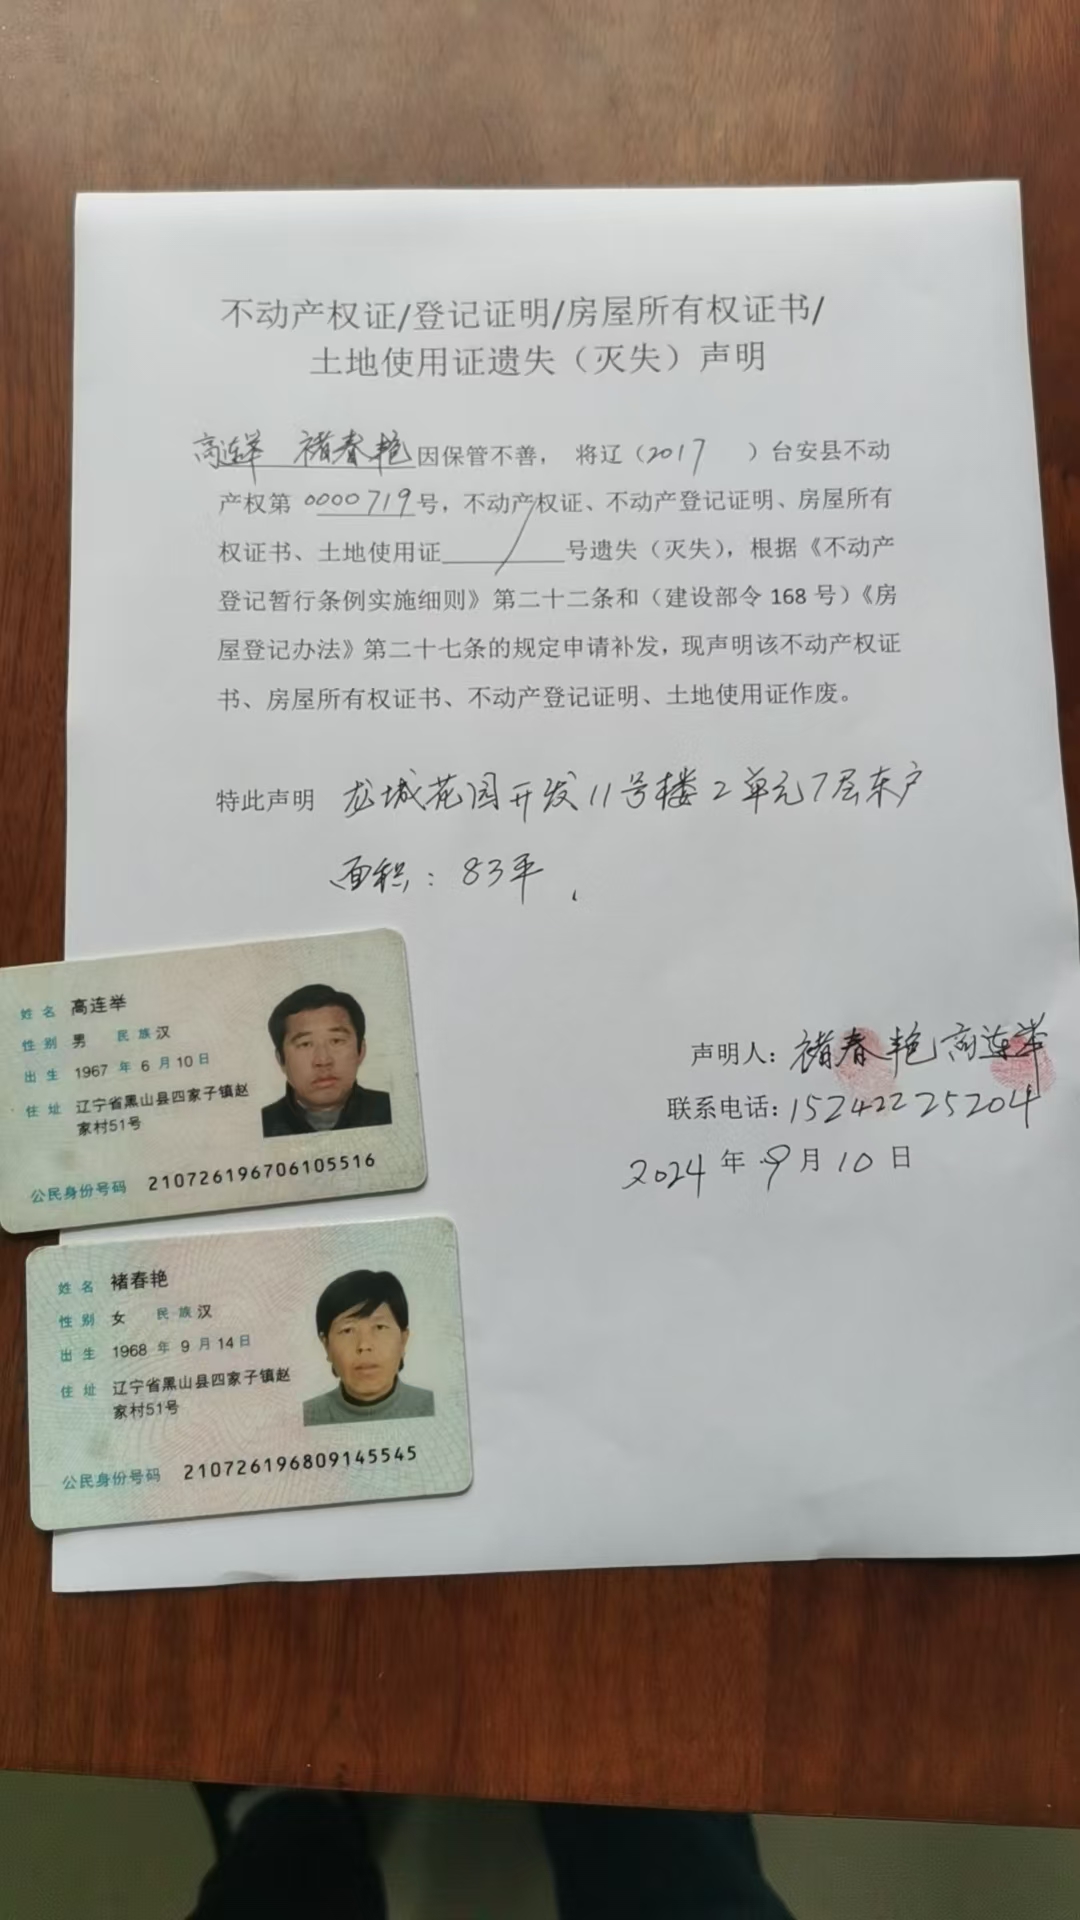 不动产权证/登记证明/房屋所有权证书/
土地使用证遗失（灭失）声明
高连举 褚春艳因保管不善，将辽（2017 ）台安县不动
产权第 0000719号，不动产权证、不动产登记证明、房屋所有
权证书、土地使用证 / 号遗失（灭失），根据《不动产
登记暂行条例实施细则》第二十二条和（建设部令 168 号）《房
屋登记办法》第二十七条的规定申请补发，现声明该不动产权证
书、房屋所有权证书、不动产登记证明、土地使用证作废。
特此声明 龙城花园开发11号楼2单元7层东户
面积：83平
声明人：褚春艳 高连举
联系电话：15242225204
2024 年 9 月 10 日
姓名 高连举
性别 男 民族 汉
出生 1967 年 6 月 10 日
住址 辽宁省黑山县四家子镇赵
家村51号
公民身份号码 210726196706105516
姓名 褚春艳
性别 女 民族 汉
出生 1968 年 9 月 14 日
住址 辽宁省黑山县四家子镇赵
家村51号
公民身份号码 210726196809145545